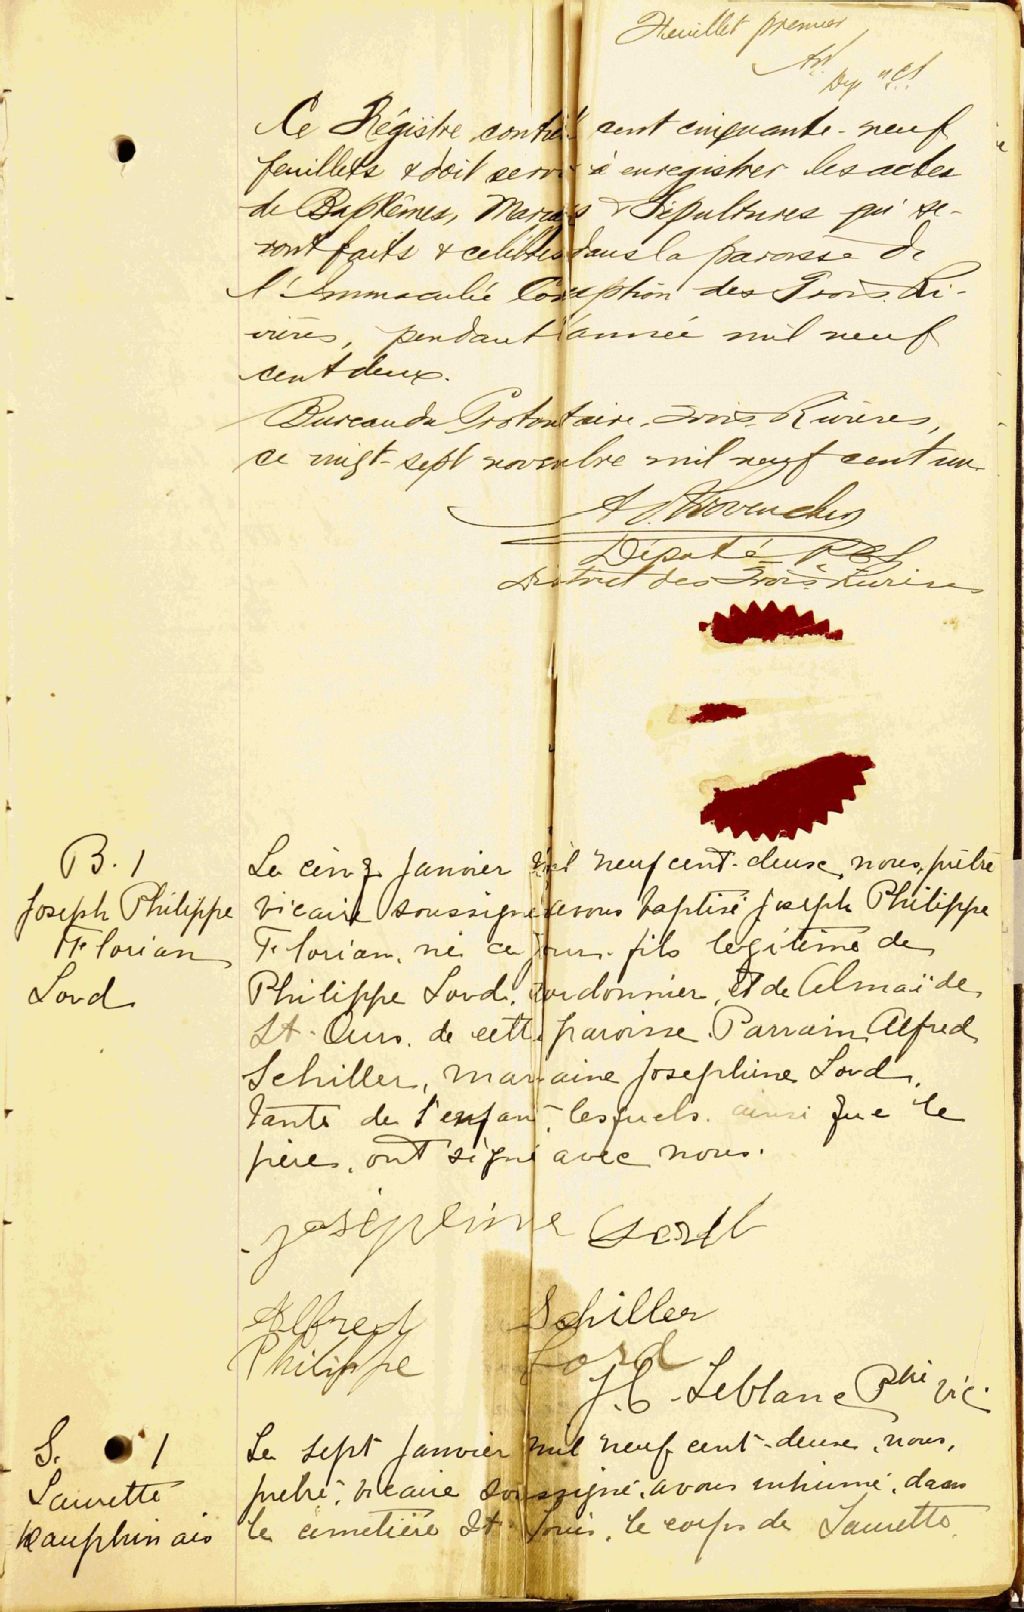 Feuillet premier
Dep
Ce Régistre contient cent cinquante-neuf
feuillets & doit servir à enregistrer les actes
de Baptêmes, Mariages & Sépultures qui se-
ront faits & célébrés dans la paroisse de
l'Immaculée Conception des Trois-Ri-
vières, pendant l'année mil neuf
cent deux.
Bureau du Protonotaire. Trois Rivières,
ce vingt-sept novembre mil neuf cent un.
Provencher
Député P.C.S.
District des Trois Rivières
B. 1
Joseph Philippe
Florian
Lord
Le cinq Janvier mil neuf cent-deux, nous, prêtre
vicaire soussigné avons baptisé Joseph Philippe
Florian, né ce jour, fils légitime de
Philippe Lord, cordonnier, et de Almaïde
St-Ours, de cette paroisse. Parrain Alfred
Schiller, marraine Josephine Lord,
tante de l'enfant, lesquels ainsi que le
père, ont signé avec nous.
Joséphine Lord
Alfred Schiller
Philippe Lord
J. C. Leblanc Ptre vic.
S. 1
Laurette
Dauphinais
Le sept Janvier mil neuf cent-deux, nous,
prêtre, vicaire soussigné, avons inhumé, dans
le cimetière St Louis, le corps de Laurette